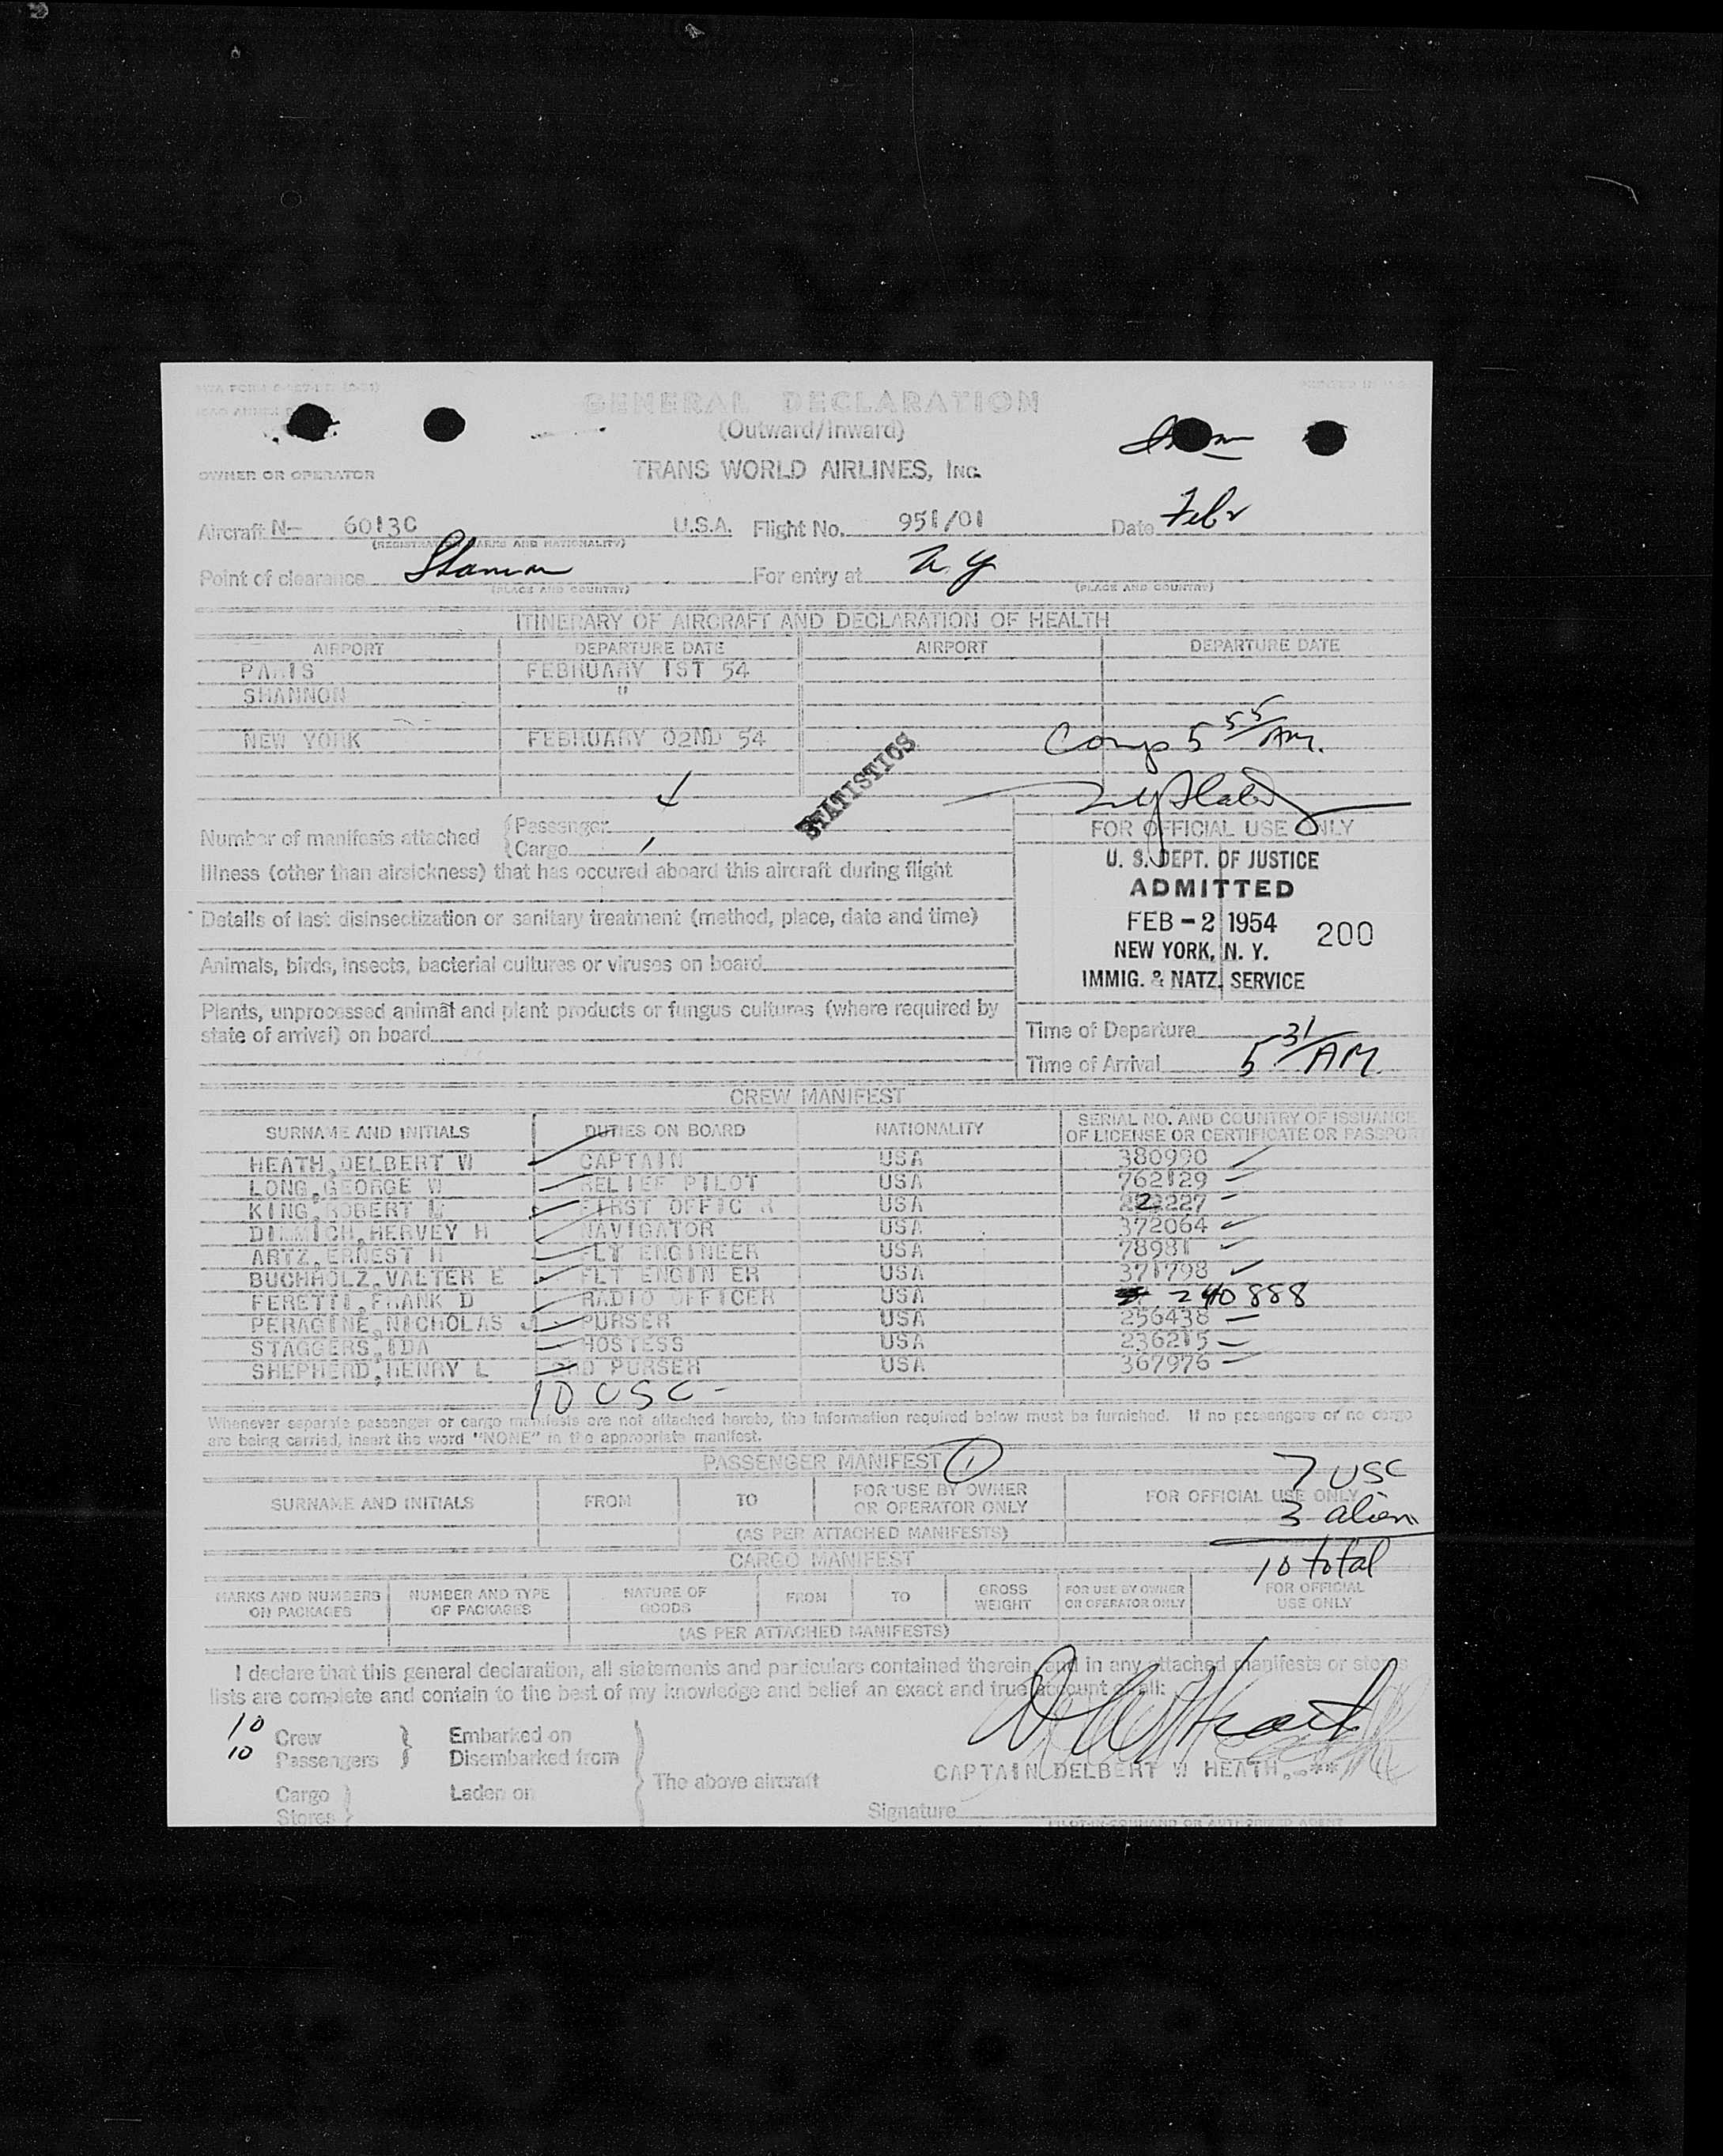 GENERAL DECLARATION
(Outward/Inward)
OWNER OR OPERATOR TRANS WORLD AIRLINES, INC.
Aircraft N- 6013C U.S.A. Flight No. 951/01 Date Feb 2
(REGISTRATION MARKS AND NATIONALITY)
Point of clearance Shannon For entry at N Y
(PLACE AND COUNTRY) (PLACE AND COUNTRY)
ITINERARY OF AIRCRAFT AND DECLARATION OF HEALTH
AIRPORT DEPARTURE DATE AIRPORT DEPARTURE DATE
PARIS FEBRUARY 1ST 54
SHANNON "
NEW YORK FEBRUARY 02ND 54 Comp 5 55/AM.
STATISTICS
Number of manifests attached { Passenger
{ Cargo
FOR OFFICIAL USE ONLY
U. S. DEPT. OF JUSTICE
ADMITTED
FEB - 2 1954 200
NEW YORK, N. Y.
IMMIG. & NATZ. SERVICE
Illness (other than airsickness) that has occured aboard this aircraft during flight
Details of last disinsectization or sanitary treatment (method, place, date and time)
Animals, birds, insects, bacterial cultures or viruses on board
Plants, unprocessed animal and plant products or fungus cultures (where required by
state of arrival) on board
Time of Departure
Time of Arrival 5 31/AM.
CREW MANIFEST
SURNAME AND INITIALS DUTIES ON BOARD NATIONALITY SERIAL NO. AND COUNTRY OF ISSUANCE
OF LICENSE OR CERTIFICATE OR PASSPORT
HEATH, DELBERT W CAPTAIN USA 380990
LONG, GEORGE W RELIEF PILOT USA 762129
KING, ROBERT FIRST OFFIC R USA 227
DIMMICH, HERVEY H NAVIGATOR USA 372064
ARTZ, ERNEST H FLT ENGINEER USA 78981
BUCHHOLZ, WALTER E FLT ENGIN ER USA 371798
FERETTI, FRANK D RADIO OFFICER USA 240888
PERAGINE, NICHOLAS J PURSER USA 256438
STAGGERS, IDA HOSTESS USA 236215
SHEPHERD, HENRY L 2ND PURSER USA 367976
10 USC -
Whenever separate passenger or cargo manifests are not attached hereto, the information required below must be furnished. If no passengers or no cargo
are being carried, insert the word "NONE" in the appropriate manifest.
PASSENGER MANIFEST 1
7 USC
SURNAME AND INITIALS FROM TO FOR USE BY OWNER
OR OPERATOR ONLY FOR OFFICIAL USE ONLY
3 alien
(AS PER ATTACHED MANIFESTS)
CARGO MANIFEST
10 total
MARKS AND NUMBERS
ON PACKAGES NUMBER AND TYPE
OF PACKAGES NATURE OF
GOODS FROM TO GROSS
WEIGHT FOR USE BY OWNER
OR OPERATOR ONLY FOR OFFICIAL
USE ONLY
(AS PER ATTACHED MANIFESTS)
I declare that this general declaration, all statements and particulars contained therein, and in any attached manifests or stores
lists are complete and contain to the best of my knowledge and belief an exact and true account of all:
10 Crew } Embarked on
10 Passengers } Disembarked from
The above aircraft
CAPTAIN DELBERT W HEATH.-**
Cargo } Laden on
Stores }
Signature
PILOT-IN-COMMAND OR AUTHORIZED AGENT